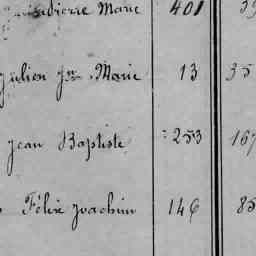 Marie 401
Julien Jn Marie 13 35
Jean Baptiste 253 167
Félix Joachim 146 85